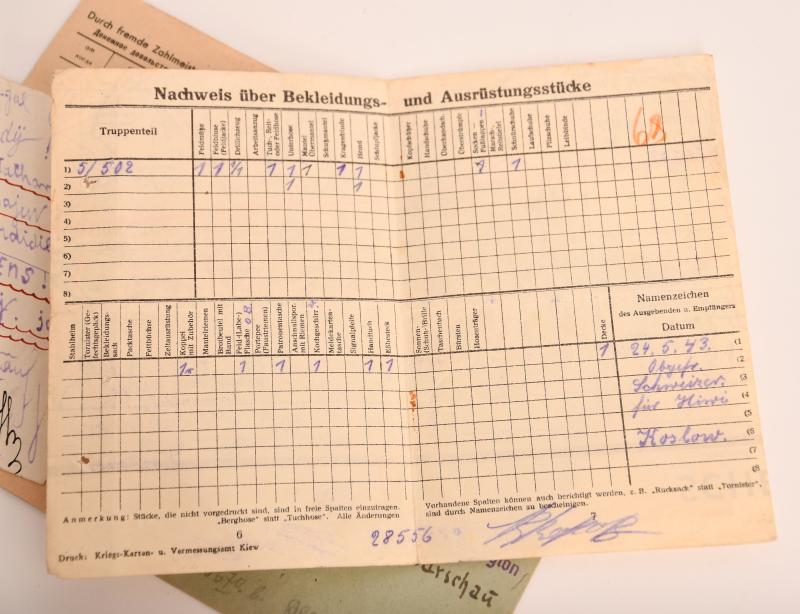 Durch fremde Zahlmeist
Денежное довольств
Nachweis über Bekleidungs- und Ausrüstungsstücke
Truppenteil
Feldmütze
Feldbluse
(Feldjacke)
Drillichanzug
Arbeitsanzug
Tuch-, Reit-
oder Feldhose
Unterhose
Mantel
Übermantel
Schutzmantel
Kragenbinde
Hemd
Schlupfjacke
Kopfschützer
Handschuhe
Überhandsch.
Überstrümpfe
Socken-
Fußlappen
Marsch-,
Reitstiefel
Schnürschuhe
Laufschuhe
Filzschuhe
Leibbinde
68
1) 5/502 1 1 1/1 1 1 1 1 1 1 1
2) 1 1
3)
4)
5)
6)
7)
8)
Stahlhelm
Tornister (Ge-
fechtsgepäck)
Bekleidungs-
sack
Packtasche
Fettbüchse
Zeltausrüstung
Koppel
mit Zubehör
Mantelriemen
Brotbeutel mit
Band
Feld-(Labe-)
Flasche o B.
Portepee
(Faustriemen)
Patronentasche
Anschnallspor.
mit Riemen
Kochgeschirr
Meldekarten-
tasche
Signalpfeife
Handtuch
Eßbesteck
Sonnen-
(Schutz-)Brille
Taschentuch
Bürsten
Hosenträger
Decke
Namenzeichen
des Ausgebenden u. Empfängers
Datum
1 1 1 1 1 1 1 24. 5. 43. (1
Obgefr. (2
Schweizer. (3
für Hiwi (4
(5
Koslow. (6
(7
(8
Anmerkung: Stücke, die nicht vorgedruckt sind, sind in freie Spalten einzutragen.
„Berghose" statt „Tuchhose". Alle Änderungen
Vorhandene Spalten können auch berichtigt werden, z. B. „Rucksack" statt „Tornister",
sind durch Namenzeichen zu bescheinigen.
6
7
28556
Druck: Kriegs-Karten- u. Vermessungsamt Kiew
gion,
arschau